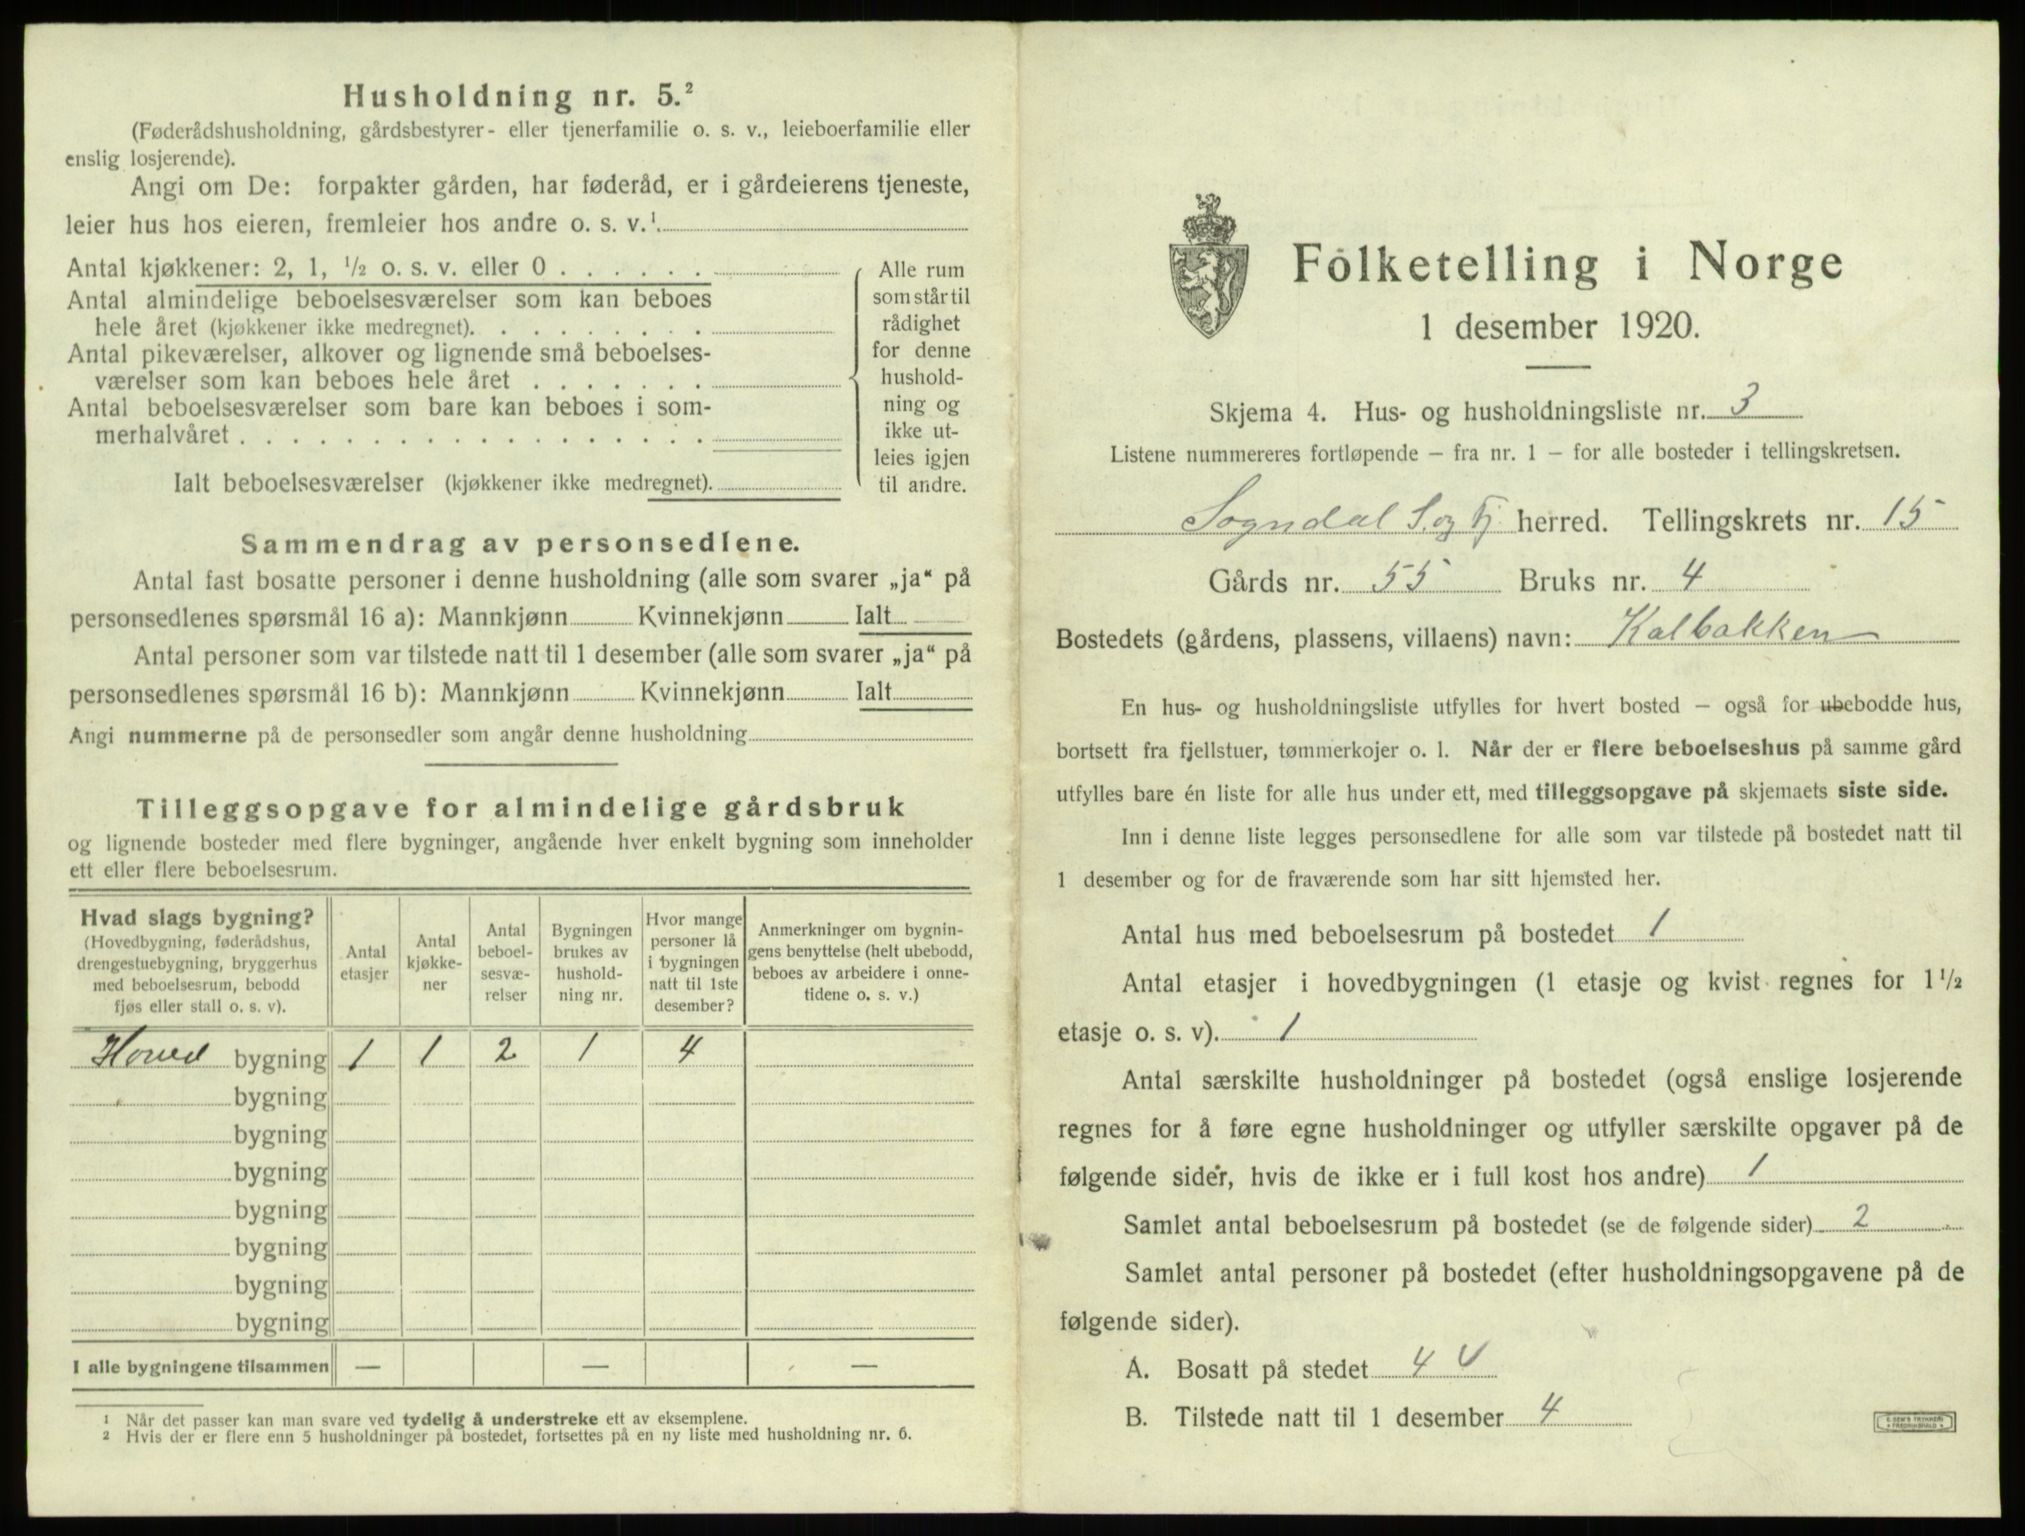 Husholdning nr. 5.²
(Føderådshusholdning, gårdsbestyrer- eller tjenerfamilie o. s. v., leieboerfamilie eller
enslig losjerende).
Angi om De: forpakter gården, har føderåd, er i gårdeierens tjeneste,
leier hus hos eieren, fremleier hos andre o. s. v.¹
Antal kjøkkener: 2, 1, ½ o. s. v. eller 0
Antal almindelige beboelsesværelser som kan beboes
hele året (kjøkkener ikke medregnet).
Antal pikeværelser, alkover og lignende små beboelses-
værelser som kan beboes hele året
Antal beboelsesværelser som bare kan beboes i som-
merhalvåret
Ialt beboelsesværelser (kjøkkener ikke medregnet).
Alle rum
som står til
rådighet
for denne
hushold-
ning og
ikke ut-
leies igjen
til andre.
Sammendrag av personsedlene.
Antal fast bosatte personer i denne husholdning (alle som svarer „ja“ på
personsedlenes spørsmål 16 a): Mannkjønn Kvinnekjønn Ialt
Antal personer som var tilstede natt til 1 desember (alle som svarer „ja“ på
personsedlenes spørsmål 16 b): Mannkjønn Kvinnekjønn Ialt
Angi nummerne på de personsedler som angår denne husholdning
Tilleggsopgave for almindelige gårdsbruk
og lignende bosteder med flere bygninger, angående hver enkelt bygning som inneholder
ett eller flere beboelsesrum.
Hvad slags bygning?
(Hovedbygning, føderådshus,
drengestuebygning, bryggerhus
med beboelsesrum, bebodd
fjøs eller stall o. s. v).
Antal
etasjer
Antal
kjøkke-
ner
Antal
beboel-
sesvæ-
relser
Bygningen
brukes av
hushold-
ning nr.
Hvor mange
personer lå
i bygningen
natt til 1ste
desember?
Anmerkninger om bygnin-
gens benyttelse (helt ubebodd,
beboes av arbeidere i onne-
tidene o. s. v.)
Hoved bygning 1 1 2 1 4
bygning
bygning
bygning
bygning
bygning
bygning
bygning
I alle bygningene tilsammen — — —
¹ Når det passer kan man svare ved tydelig å understreke ett av eksemplene.
² Hvis der er flere enn 5 husholdninger på bostedet, fortsettes på en ny liste med husholdning nr. 6.
Folketelling i Norge
1 desember 1920.
Skjema 4. Hus- og husholdningsliste nr. 3
Listene nummereres fortløpende – fra nr. 1 – for alle bosteder i tellingskretsen.
Sogndal S. og Fj. herred. Tellingskrets nr. 15
Gårds nr. 55 Bruks nr. 4
Bostedets (gårdens, plassens, villaens) navn: Kalbakken
En hus- og husholdningsliste utfylles for hvert bosted – også for ubebodde hus,
bortsett fra fjellstuer, tømmerkojer o. l. Når der er flere beboelseshus på samme gård
utfylles bare én liste for alle hus under ett, med tilleggsopgave på skjemaets siste side.
Inn i denne liste legges personsedlene for alle som var tilstede på bostedet natt til
1 desember og for de fraværende som har sitt hjemsted her.
Antal hus med beboelsesrum på bostedet 1
Antal etasjer i hovedbygningen (1 etasje og kvist regnes for 1 ½
etasje o. s. v). 1
Antal særskilte husholdninger på bostedet (også enslige losjerende
regnes for å føre egne husholdninger og utfyller særskilte opgaver på de
følgende sider, hvis de ikke er i full kost hos andre) 1
Samlet antal beboelsesrum på bostedet (se de følgende sider) 2
Samlet antal personer på bostedet (efter husholdningsopgavene på de
følgende sider).
A. Bosatt på stedet 4 v
B. Tilstede natt til 1 desember 4